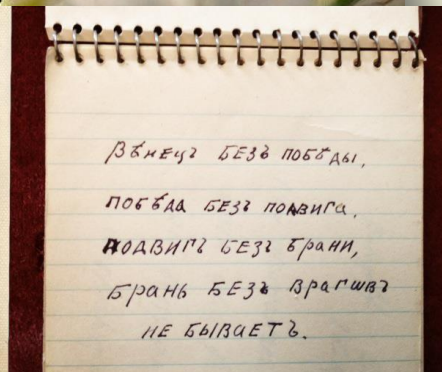 Вѣнецъ БЕЗЪ ПОБѢДЫ,
ПОБѢДА БЕЗЪ ПОДВИГА,
ПОДВИГЪ БЕЗЪ БРАНИ,
БРАНЬ БЕЗЪ ВРАГѠВЪ
НЕ БЫВАЕТЪ.